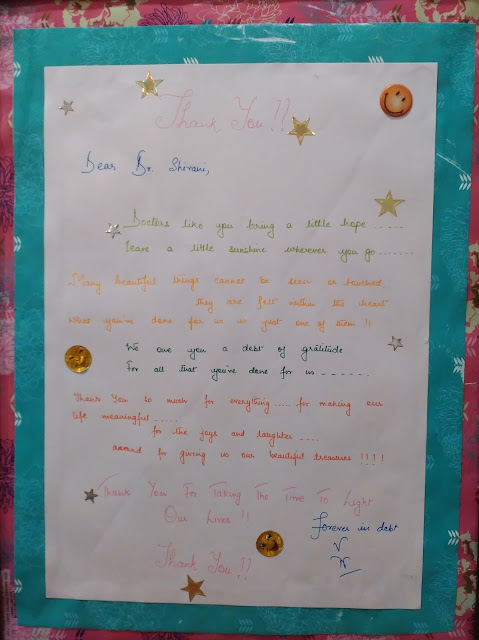 Thank You!!
Dear Dr. Shivani,
Doctors like you bring a little hope .....
Leave a little sunshine wherever you go.......
Many beautiful things cannot be seen or touched
they are felt within the heart
What you've done for us is just one of them !!
We owe you a debt of gratitude
For all that you've done for us ------
Thank You so much for everything ..... for making our
life meaningful .....
for the joys and laughter ....
for giving us our beautiful treasures !!!!
Thank You For Taking The Time To Light
Our Lives !!
Forever in debt
Thank You !!